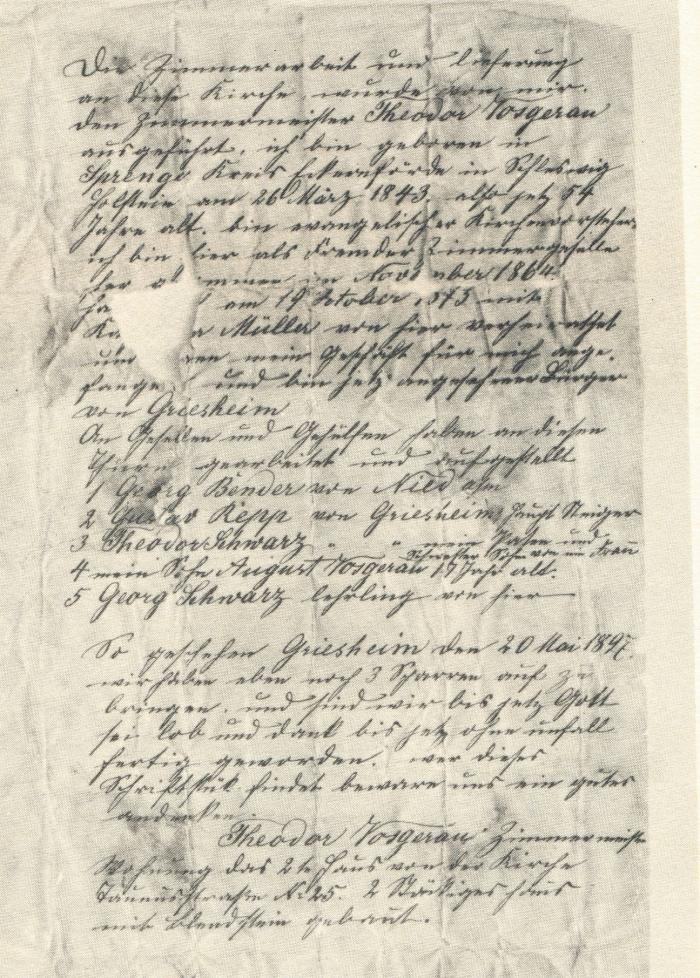 Die Zimmerarbeit und lieferung
an diese Kirche wurde von mir.
den Zimmermeister Theodor Vosgerau
ausgeführt. ich bin geboren in
Sprenge Kreis Eckernförde in Schleswig
Holstein am 26 März 1843. also jetz 54
Jahre alt. bin evangelischer Kirchenvorsteher,
ich bin hier als Fremder Zimmergeselle
am 19 mit
Müller von hier verheirathet
und mein Geschäft für mich ange.
fange und bin jetz angesehener Bürger
von Griesheim
An Gesellen und Gehülfen haben an diesen
Thurm gearbeitet und aufgestellt
1 Georg Bender von Nied a/m
2 Gustav Repp von Griesheim
3 Theodor Schwarz " " mein
Schwester Sohn von m Frau
4 mein Sohn August Vosgerau 17 Jahr alt.
5 Georg Schwarz lehrling von hier
So geschehen Griesheim den 20 Mai 1897.
wir haben eben noch 3 Sparren auf zu
bringen. und sind wir bis jetz Gott
sei lob und dank bis jetz ohne unfall
fertig geworden. wer dieses
Schriftstük findet beware uns ein gutes
andenken
Theodor Vosgerau Zimmermeister
Wohnung das 2te Haus von der Kirche
Taunusstraße No 25. 2 Stöckiges haus
mit blendstein gebaut.